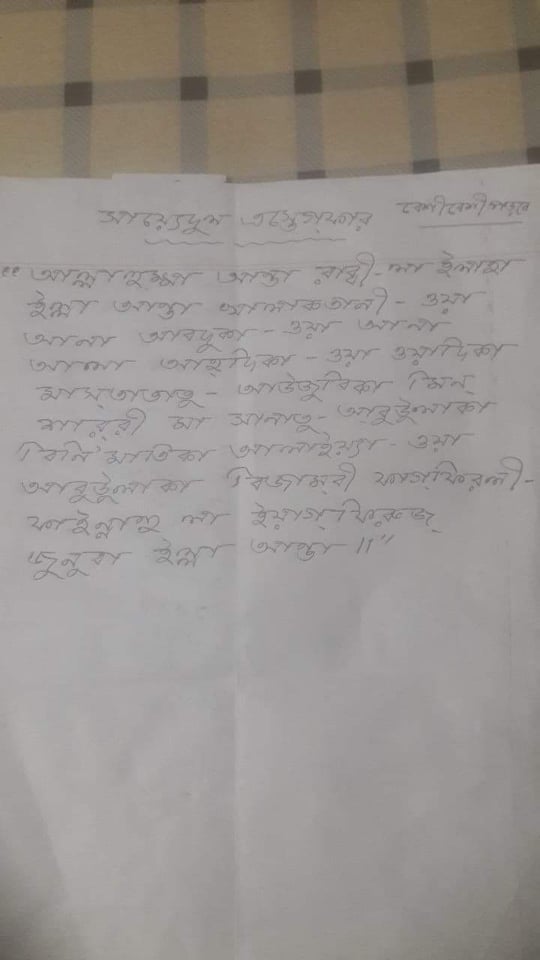 সায়্যেদুল এস্তেগফার
বেশী বেশী পড়বে
"আল্লাহুম্মা আন্তা রাব্বী - লা ইলাহা
ইল্লা আন্তা খালাকতানী - ওয়া
আনা আবদুকা - ওয়া আনা
আলা আহ্‌দিকা - ওয়া ওয়াদিকা
মাস্তাতাতু - আউজুবিকা মিন্
শার্‌রী মা সানাতু - আবুউলাকা
বিনি'মাতিকা আলাইয়্যা - ওয়া
আবুউলাকা বিজাম্বী ফাগ্‌ফিরলী -
ফাইন্নাহু লা ইয়াগ্‌ফিরুজ্
জুনুবা ইল্লা আন্তা॥"